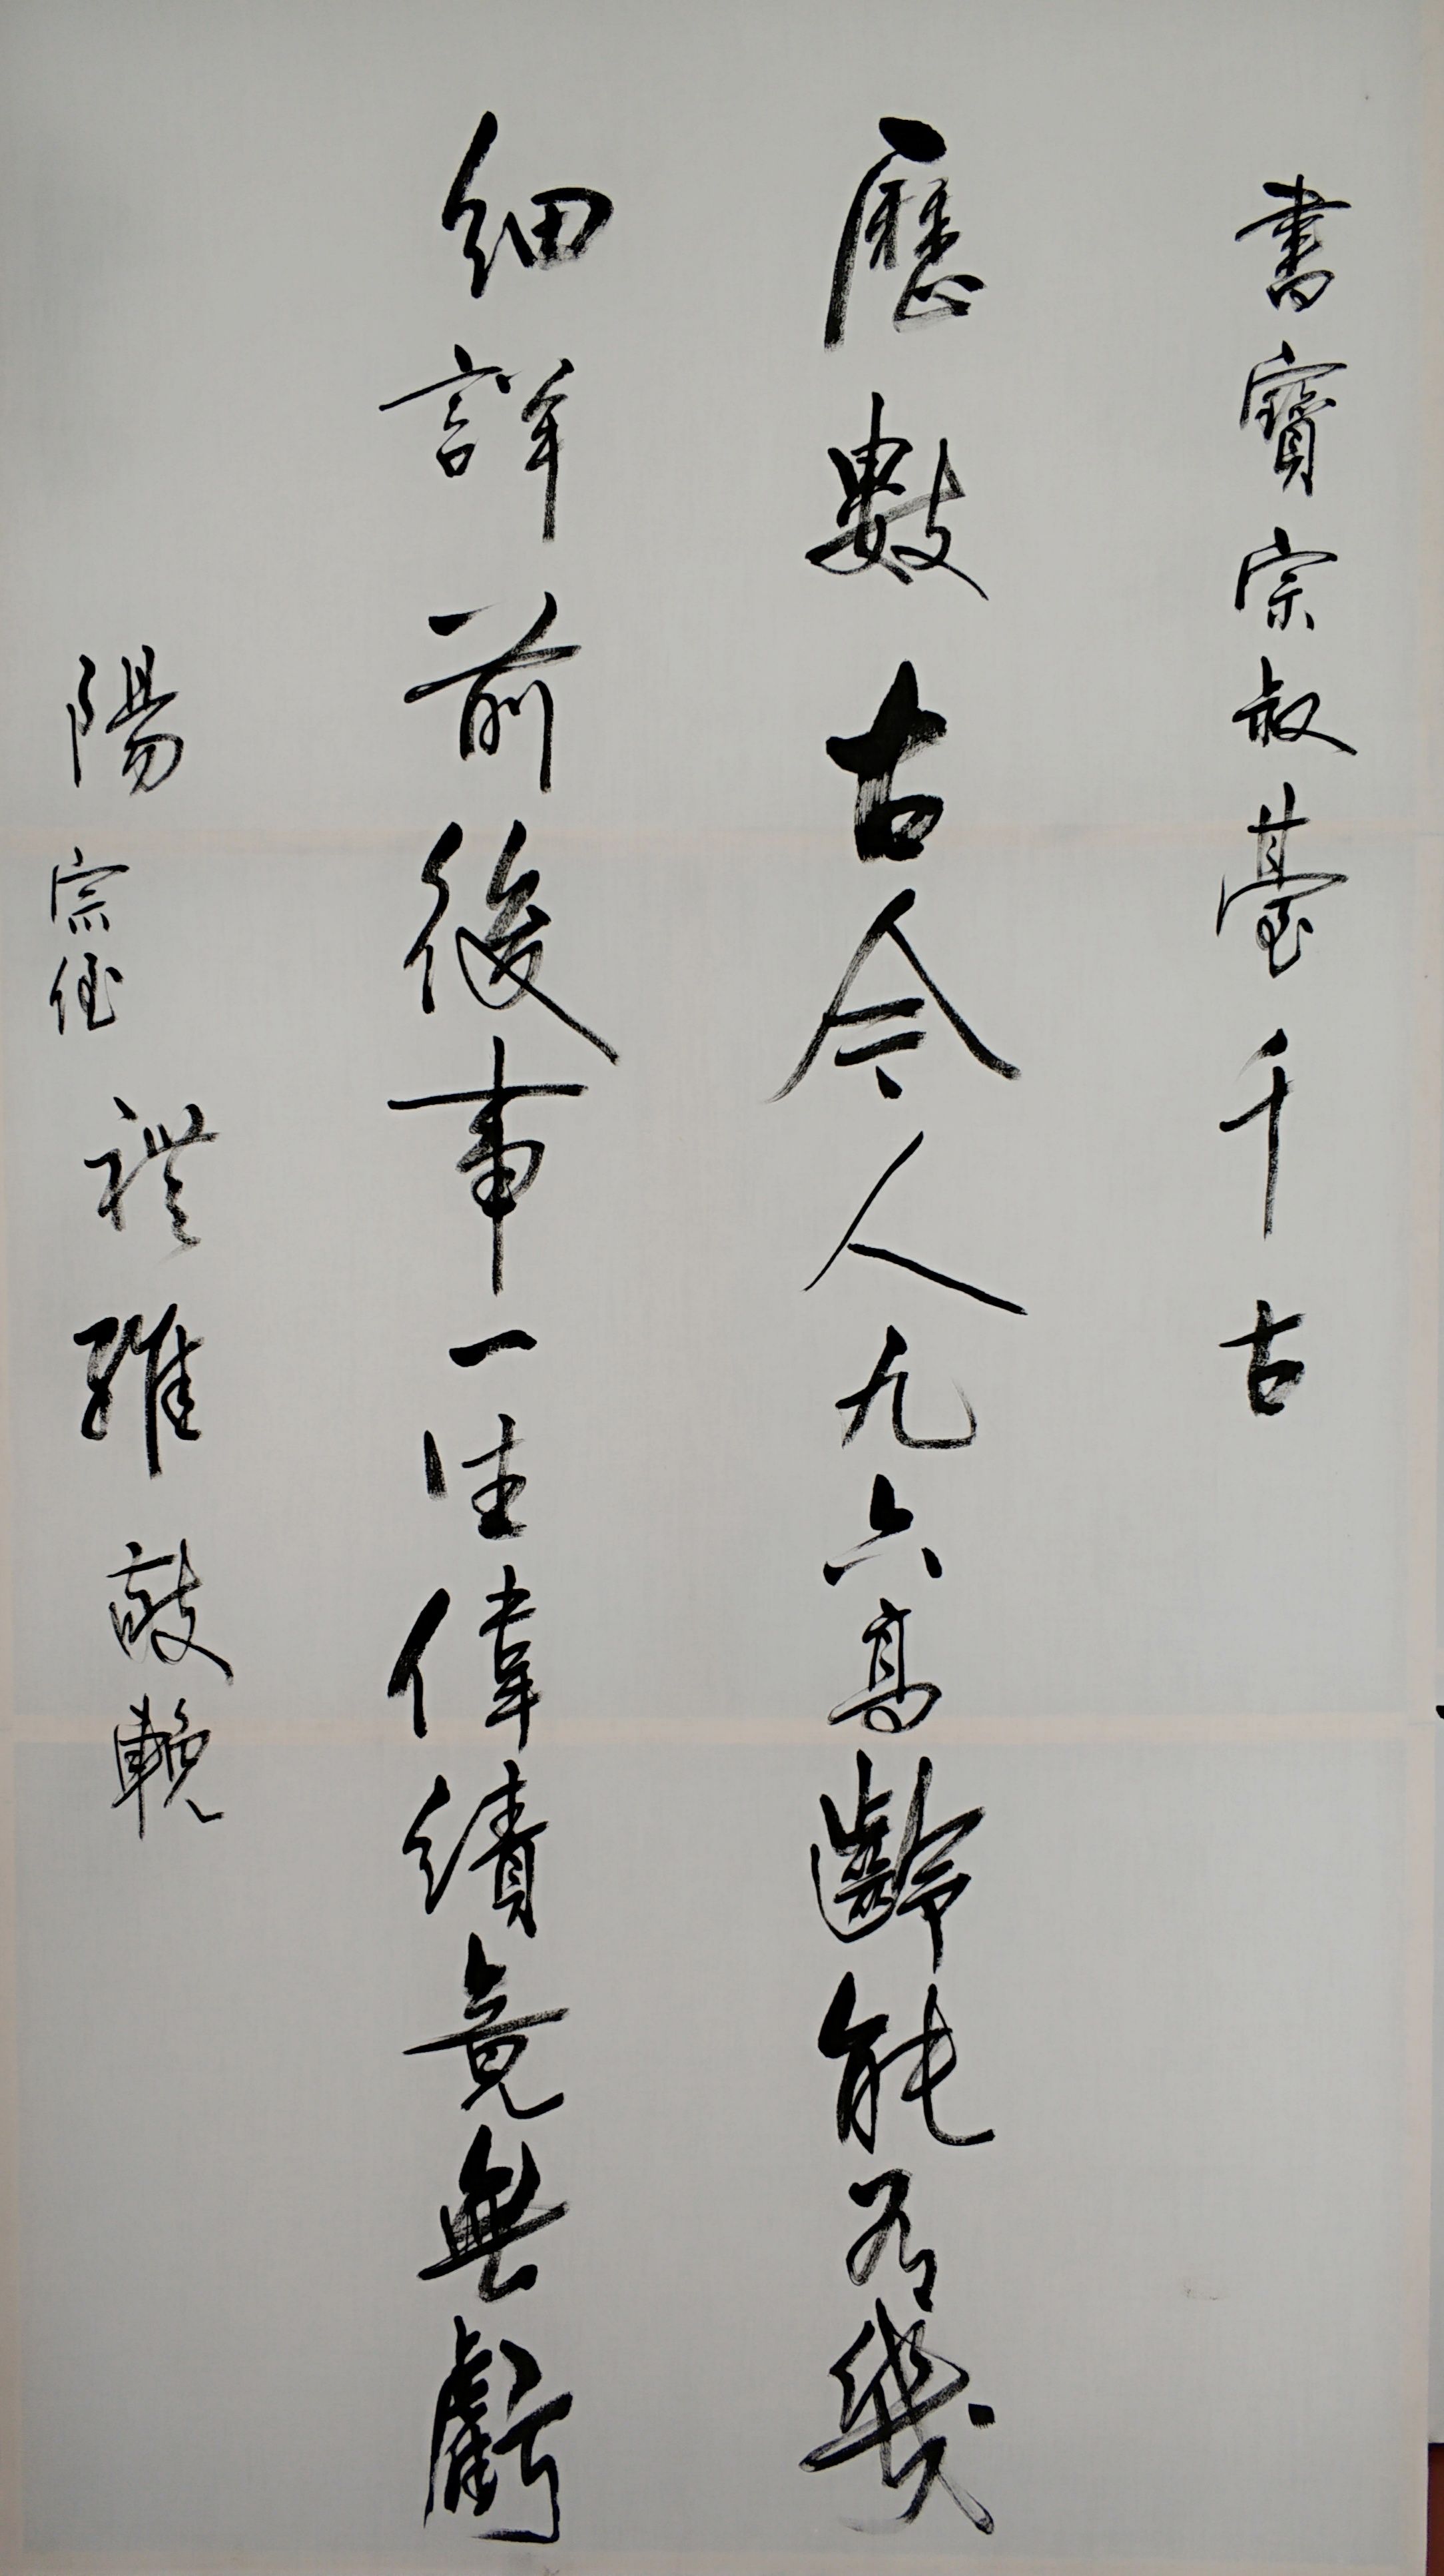 書寶宗叔臺千古
歷數古今人九六高齡能有幾
細詳前後事一生偉績竟無虧
陽宗侄禮維敬輓